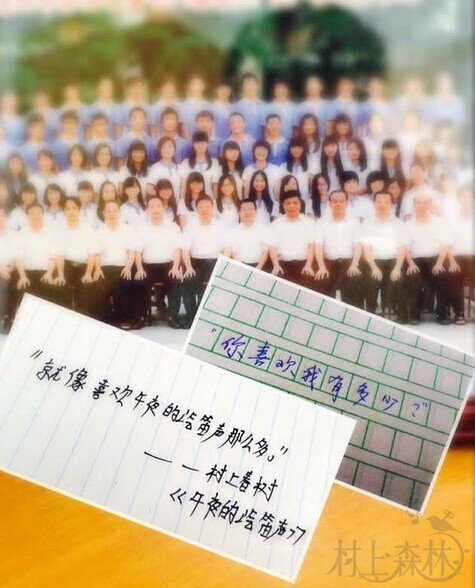 “你喜欢我有多少?”
“就像喜欢午夜的汽笛声那么多。”
——村上春树
《午夜的汽笛声》
村上森林